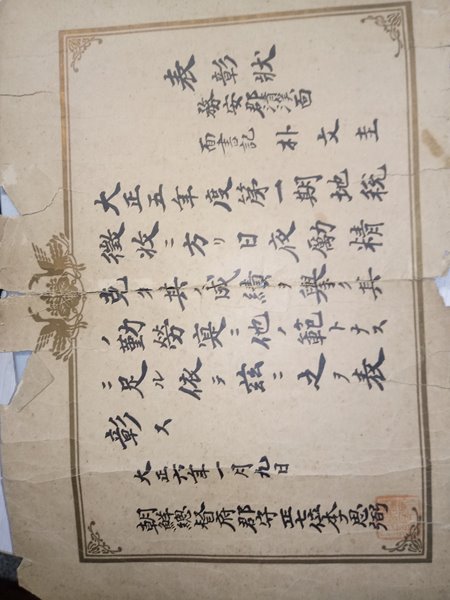 表彰狀
務安郡
面書記 朴文圭
大正五年度第一期地稅
徵收ニ方リ日夜勵精
克ク其ノ成績ヲ擧ク其
ノ勤勞寔ニ他ノ範トナス
ニ足ル依テ茲ニ之ヲ表
彰ス
大正六年一月九日
朝鮮總督府郡守正七位